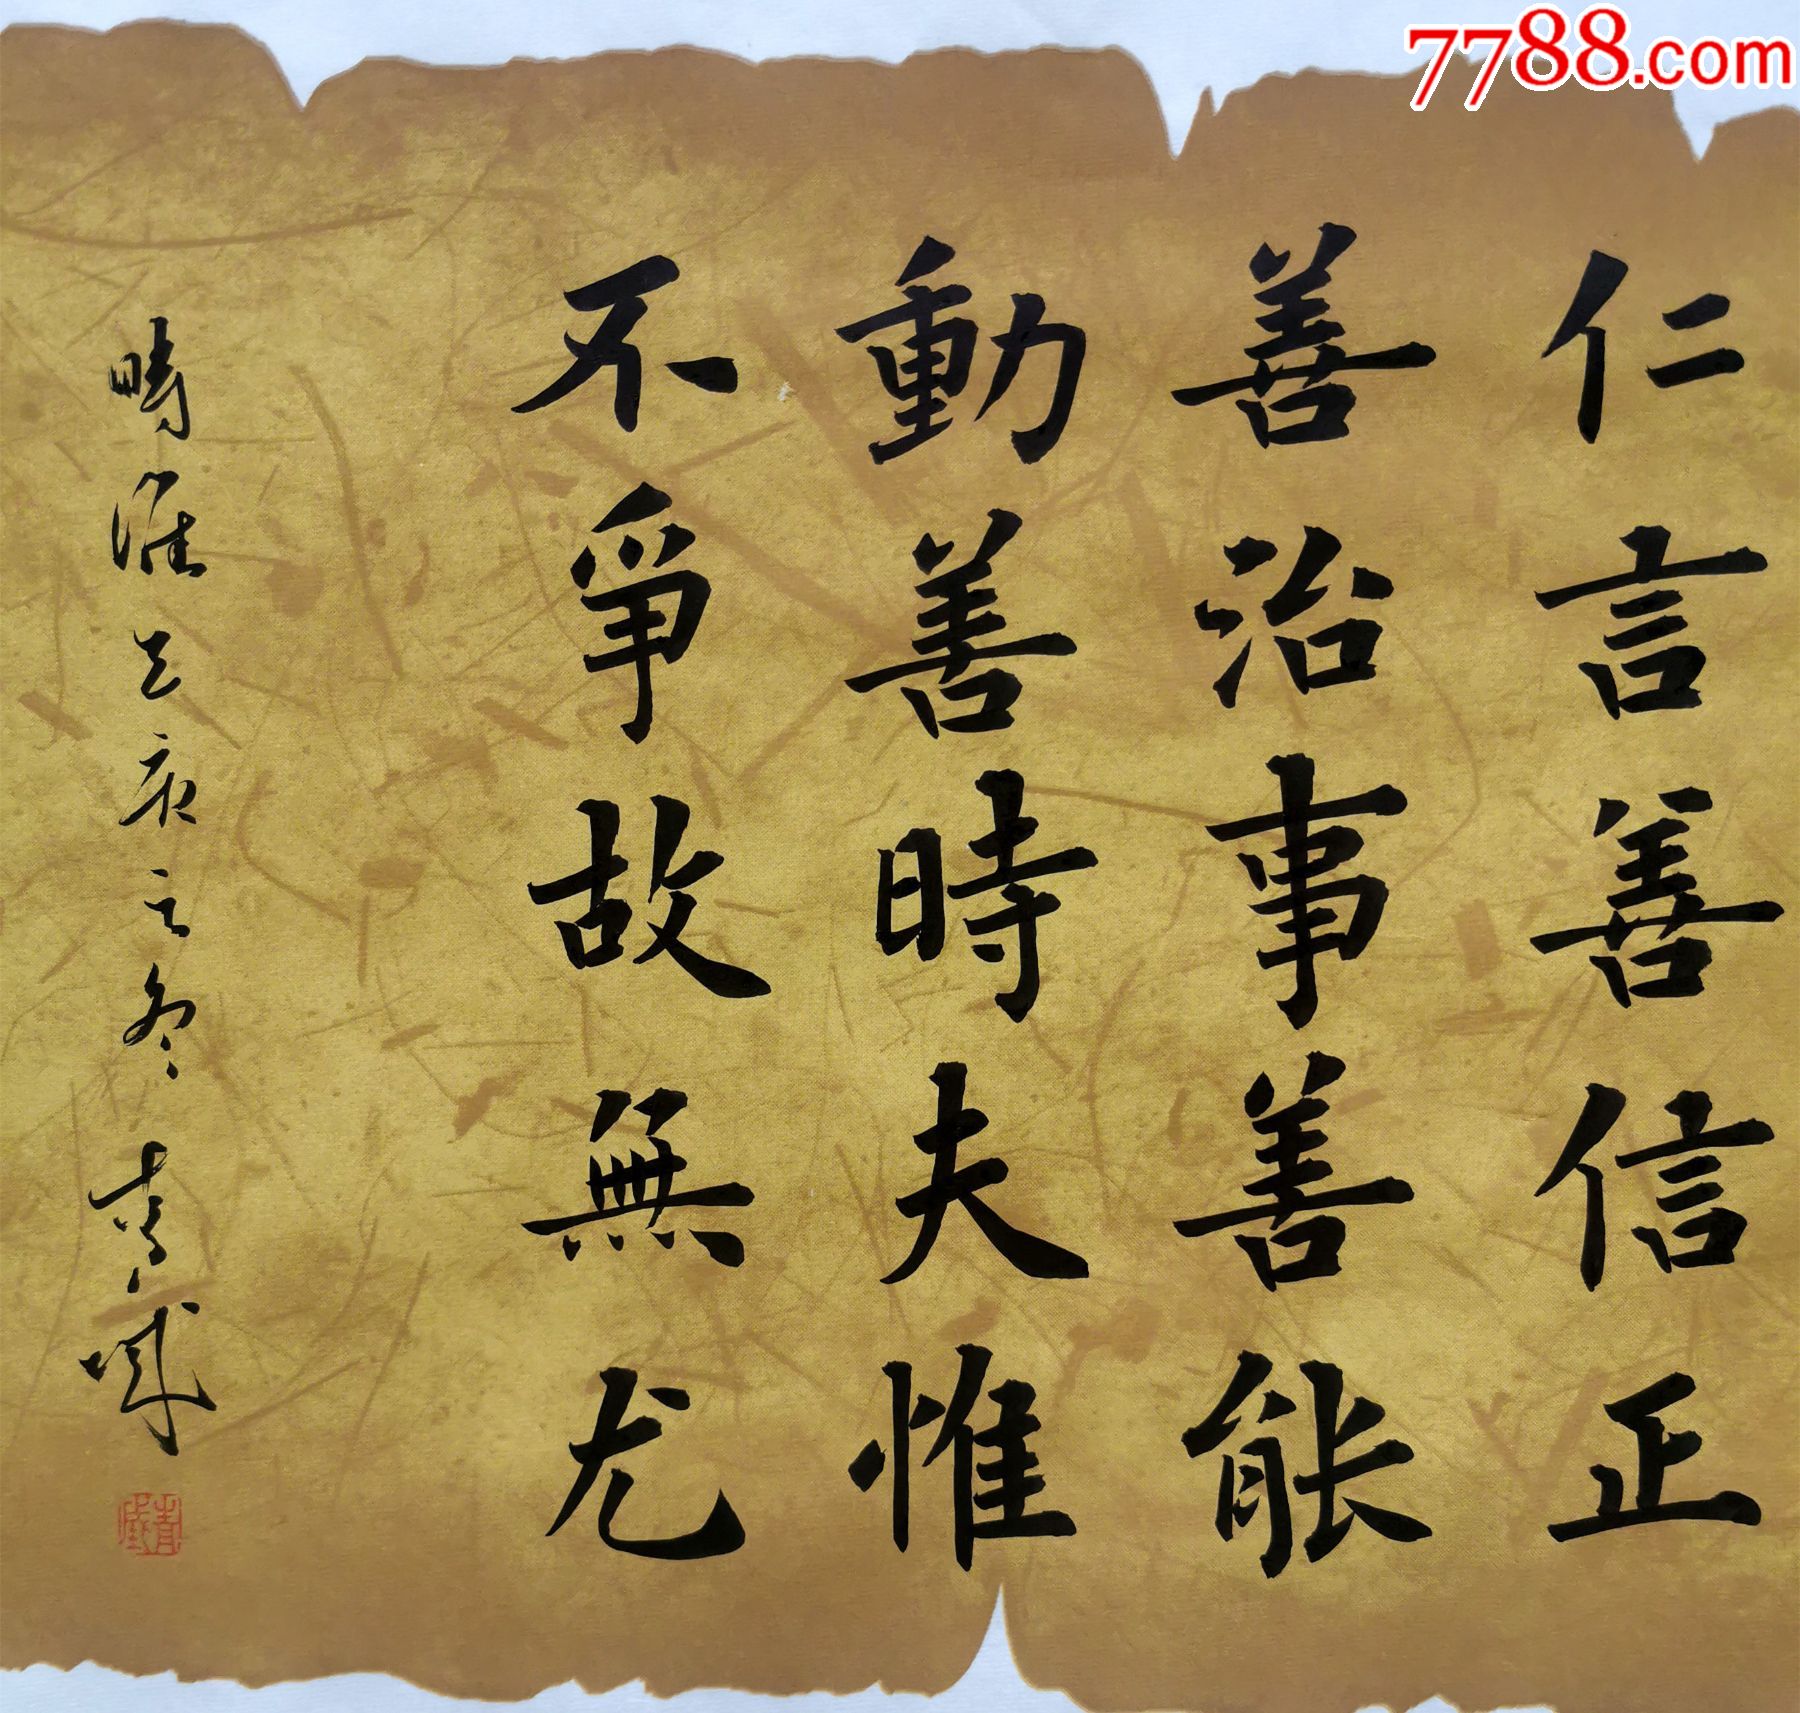 7788.com
仁言善信正
善治事善能
動善時夫惟
不爭故無尤
時維
之冬青